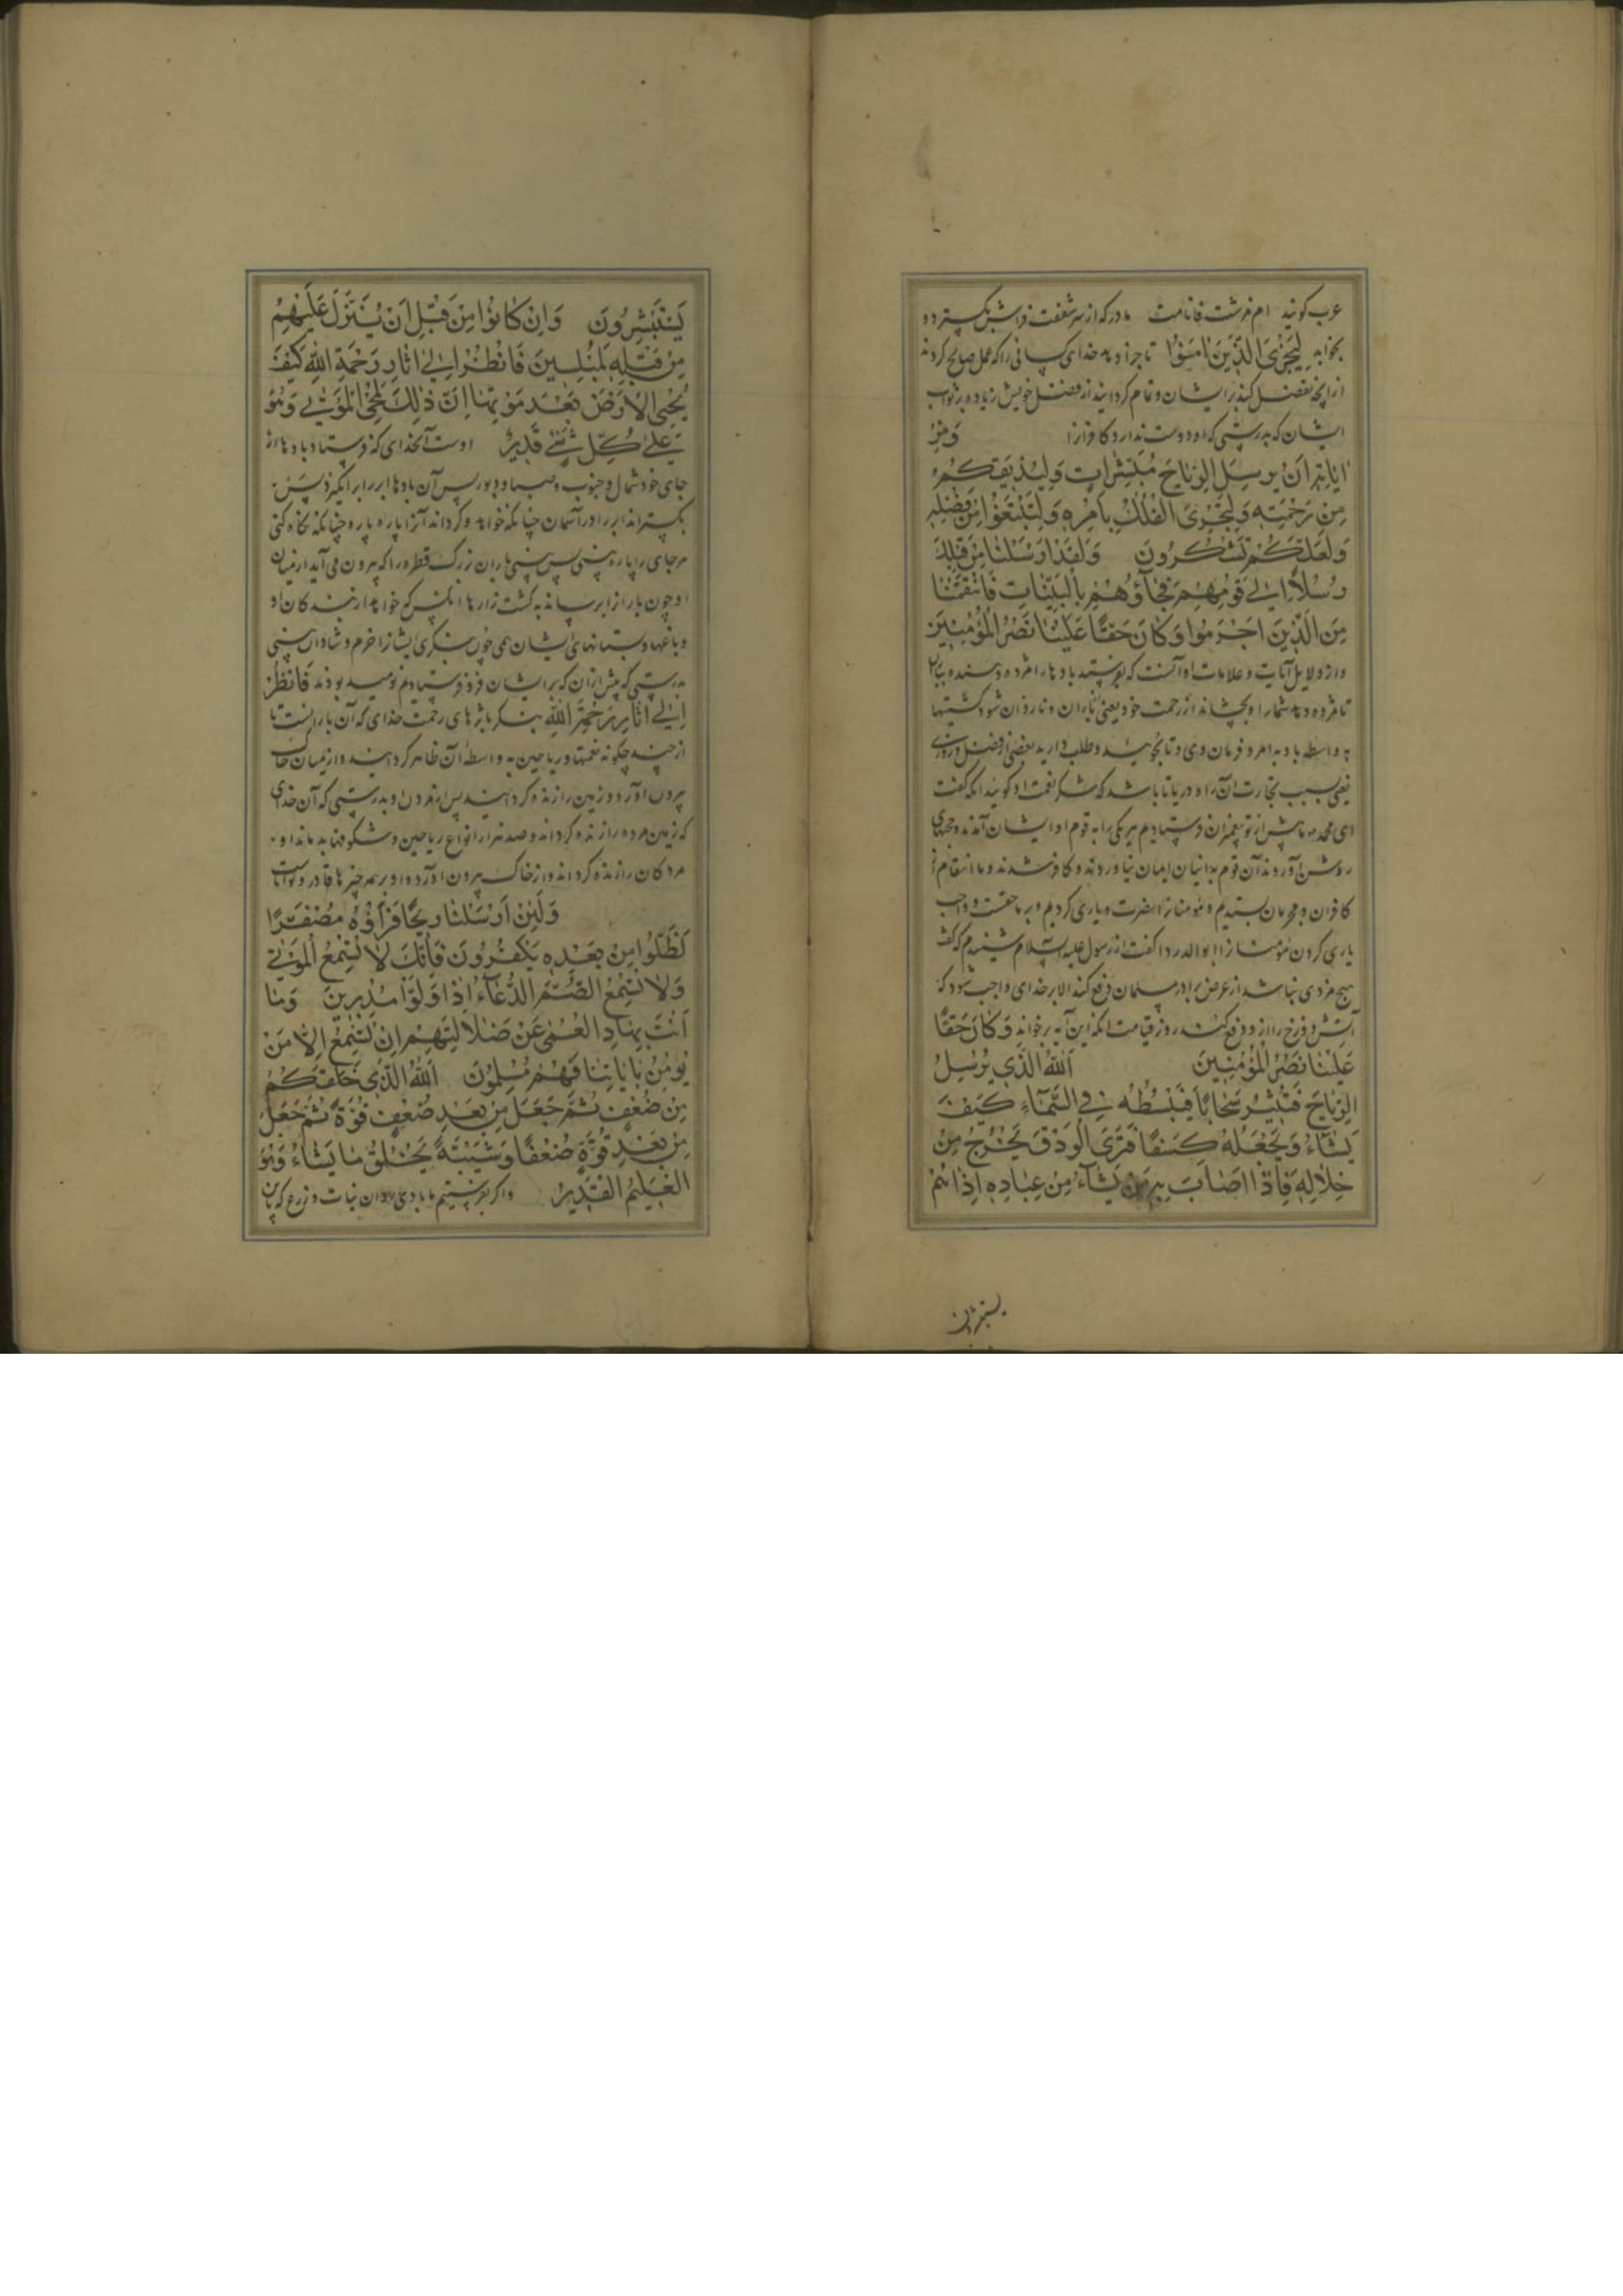 عرب کویند ام فرشت فانامت مادر که از سر شفقت فراش بکسترد و
بخوابد لِيَجْزِيَ الَّذِينَ اٰمَنُوا تا جزا دهد خدای کسانی را که عمل صالح کردند
ایشان که بدرستی که او دوست ندارد کافرانرا وَمِنْ
اٰيَاتِهِ اَنْ يُرْسِلَ الرِّيَاحَ مُبَشِّرَاتٍ وَلِيُذِيقَكُمْ
مِنْ رَحْمَتِهِ وَلِتَجْرِيَ الْفُلْكُ بِاَمْرِهِ وَلِتَبْتَغُوا مِنْ فَضْلِهِ
وَلَعَلَّكُمْ تَشْكُرُونَ وَلَقَدْ اَرْسَلْنَا مِنْ قَبْلِكَ
رُسُلًا اِلٰى قَوْمِهِمْ فَجَآؤُهُمْ بِالْبَيِّنَاتِ فَانْتَقَمْنَا
مِنَ الَّذِينَ اَجْرَمُوا وَكَانَ حَقًّا عَلَيْنَا نَصْرُ الْمُؤْمِنِينَ
و از دلایل آیات و علامات او آنست که بفرستد بادها را مژده دهنده
تا مژده دهد شما را و بچشاند از رحمت خود یعنی باران و تا روان شود کشتیها
به واسطه باد به امر و فرمان وی و تا بجویید و طلب دارید بعضی از فضل و روزی
یعنی بسبب تجارت آن راه دریا تا باشد که شکر نعمت او کویند انکه کفت
ای محمد ما پیش از تو پیغمبران فرستادیم هر یکی را به قوم او ایشان آمدند و حجتهای
روشن آوردند آن قوم بدانیان ایمان نیاوردند و کافر شدند و ما انتقام از
کافران و مجرمان بستدیم و مؤمنانرا نصرت و یاری کردیم و بر ما حقست و واجب
یاری کردن مؤمنانرا ابوالدردا کفت از رسول علیه السلام شنیدم که کفت
هیچ مردی نباشد از عرض برادر مسلمان دفع کند الا بر خدای واجب شود که
آتش دوزخ را از و دفع کند روز قیامت انکه این آیه برخواند وَكَانَ حَقًّا
عَلَيْنَا نَصْرُ الْمُؤْمِنِينَ اَللّٰهُ الَّذِي يُرْسِلُ
الرِّيَاحَ فَتُثِيرُ سَحَابًا فَيَبْسُطُهُ فِي السَّمَآءِ كَيْفَ
يَشَآءُ وَيَجْعَلُهُ كِسَفًا فَتَرَى الْوَدْقَ يَخْرُجُ مِنْ
خِلَالِهِ فَاِذَا اَصَابَ بِهِ مَنْ يَشَآءُ مِنْ عِبَادِهِ اِذَا هُمْ
یستبشرون
يَسْتَبْشِرُونَ وَاِنْ كَانُوا مِنْ قَبْلِ اَنْ يُنَزَّلَ عَلَيْهِمْ
مِنْ قَبْلِهِ لَمُبْلِسِينَ فَانْظُرْ اِلٰى اٰثَارِ رَحْمَةِ اللّٰهِ كَيْفَ
يُحْيِي الْاَرْضَ بَعْدَ مَوْتِهَا اِنَّ ذٰلِكَ لَمُحْيِي الْمَوْتٰى وَهُوَ
عَلٰى كُلِّ شَيْءٍ قَدِيرٌ اوست آن خدای که فرستاد بادها از
جای خود شمال و جنوب و صبا و دبور پس آن بادها ابر را برانکیزد پس
بکستراند ابر را در آسمان چنانکه خواهد و کرداند آنرا پاره پاره چنانکه نکاه کنی
هر جای را پاره بینی پس بینی باران بزرک قطره را که بیرون می آید از میان
او چون باران از ابر رساند به کشت زارها آنکس که خواهد از بندکان او
و باغها و بستانهای ایشان همی چون بنکری ایشانرا خرم و شادان بینی
بدرستی که پیش از آن که بر ایشان فرو فرستادیم نومید بودند فَانْظُرْ
اِلٰى اٰثَارِ رَحْمَةِ اللّٰهِ بنکر باثرهای رحمت خدای که آن بارانست تا
چکونه نعمتها و ریاحین به واسطه آن ظاهر کردانید و از میان خاک
بیرون آورد و زمین را زنده کردانید پس از مردن او بدرستی که آن خدای
که زمین مرده را زنده کرداند و صد هزار انواع ریاحین و شکوفها بدماند او
مردکان را زنده کرداند و از خاک بیرون آورد و او بر همه چیزها قادر و تواناست
وَلَئِنْ اَرْسَلْنَا رِيحًا فَرَاَوْهُ مُصْفَرًّا
لَظَلُّوا مِنْ بَعْدِهِ يَكْفُرُونَ فَاِنَّكَ لَا تُسْمِعُ الْمَوْتٰى
وَلَا تُسْمِعُ الصُّمَّ الدُّعَآءَ اِذَا وَلَّوْا مُدْبِرِينَ وَمَا
اَنْتَ بِهَادِ الْعُمْيِ عَنْ ضَلَالَتِهِمْ اِنْ تُسْمِعُ اِلَّا مَنْ
يُؤْمِنُ بِاٰيَاتِنَا فَهُمْ مُسْلِمُونَ اَللّٰهُ الَّذِي خَلَقَكُمْ
مِنْ ضُعْفٍ ثُمَّ جَعَلَ مِنْ بَعْدِ ضُعْفٍ قُوَّةً ثُمَّ جَعَلَ
مِنْ بَعْدِ قُوَّةٍ ضُعْفًا وَشَيْبَةً يَخْلُقُ مَا يَشَآءُ وَهُوَ
الْعَلِيمُ الْقَدِيرُ و اکر بفرستیم ما بادی و آن نبات و زرع که